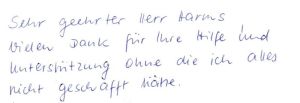 Sehr geehrter Herr Harms
vielen Dank für Ihre Hilfe und
Unterstützung ohne die ich alles
nicht geschafft hätte.